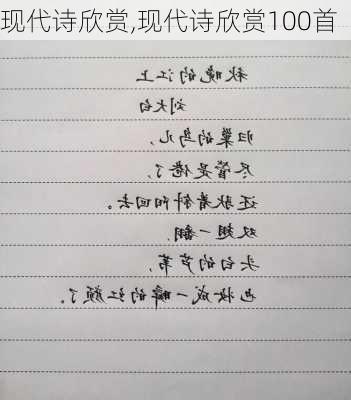 现代诗欣赏,现代诗欣赏100首
秋晚的江上
刘大白
归巢的鸟儿,
尽管是倦了,
还驮着斜阳回去。
双翅一翻,
头白的芦苇,
也妆成一瞬的红颜了。